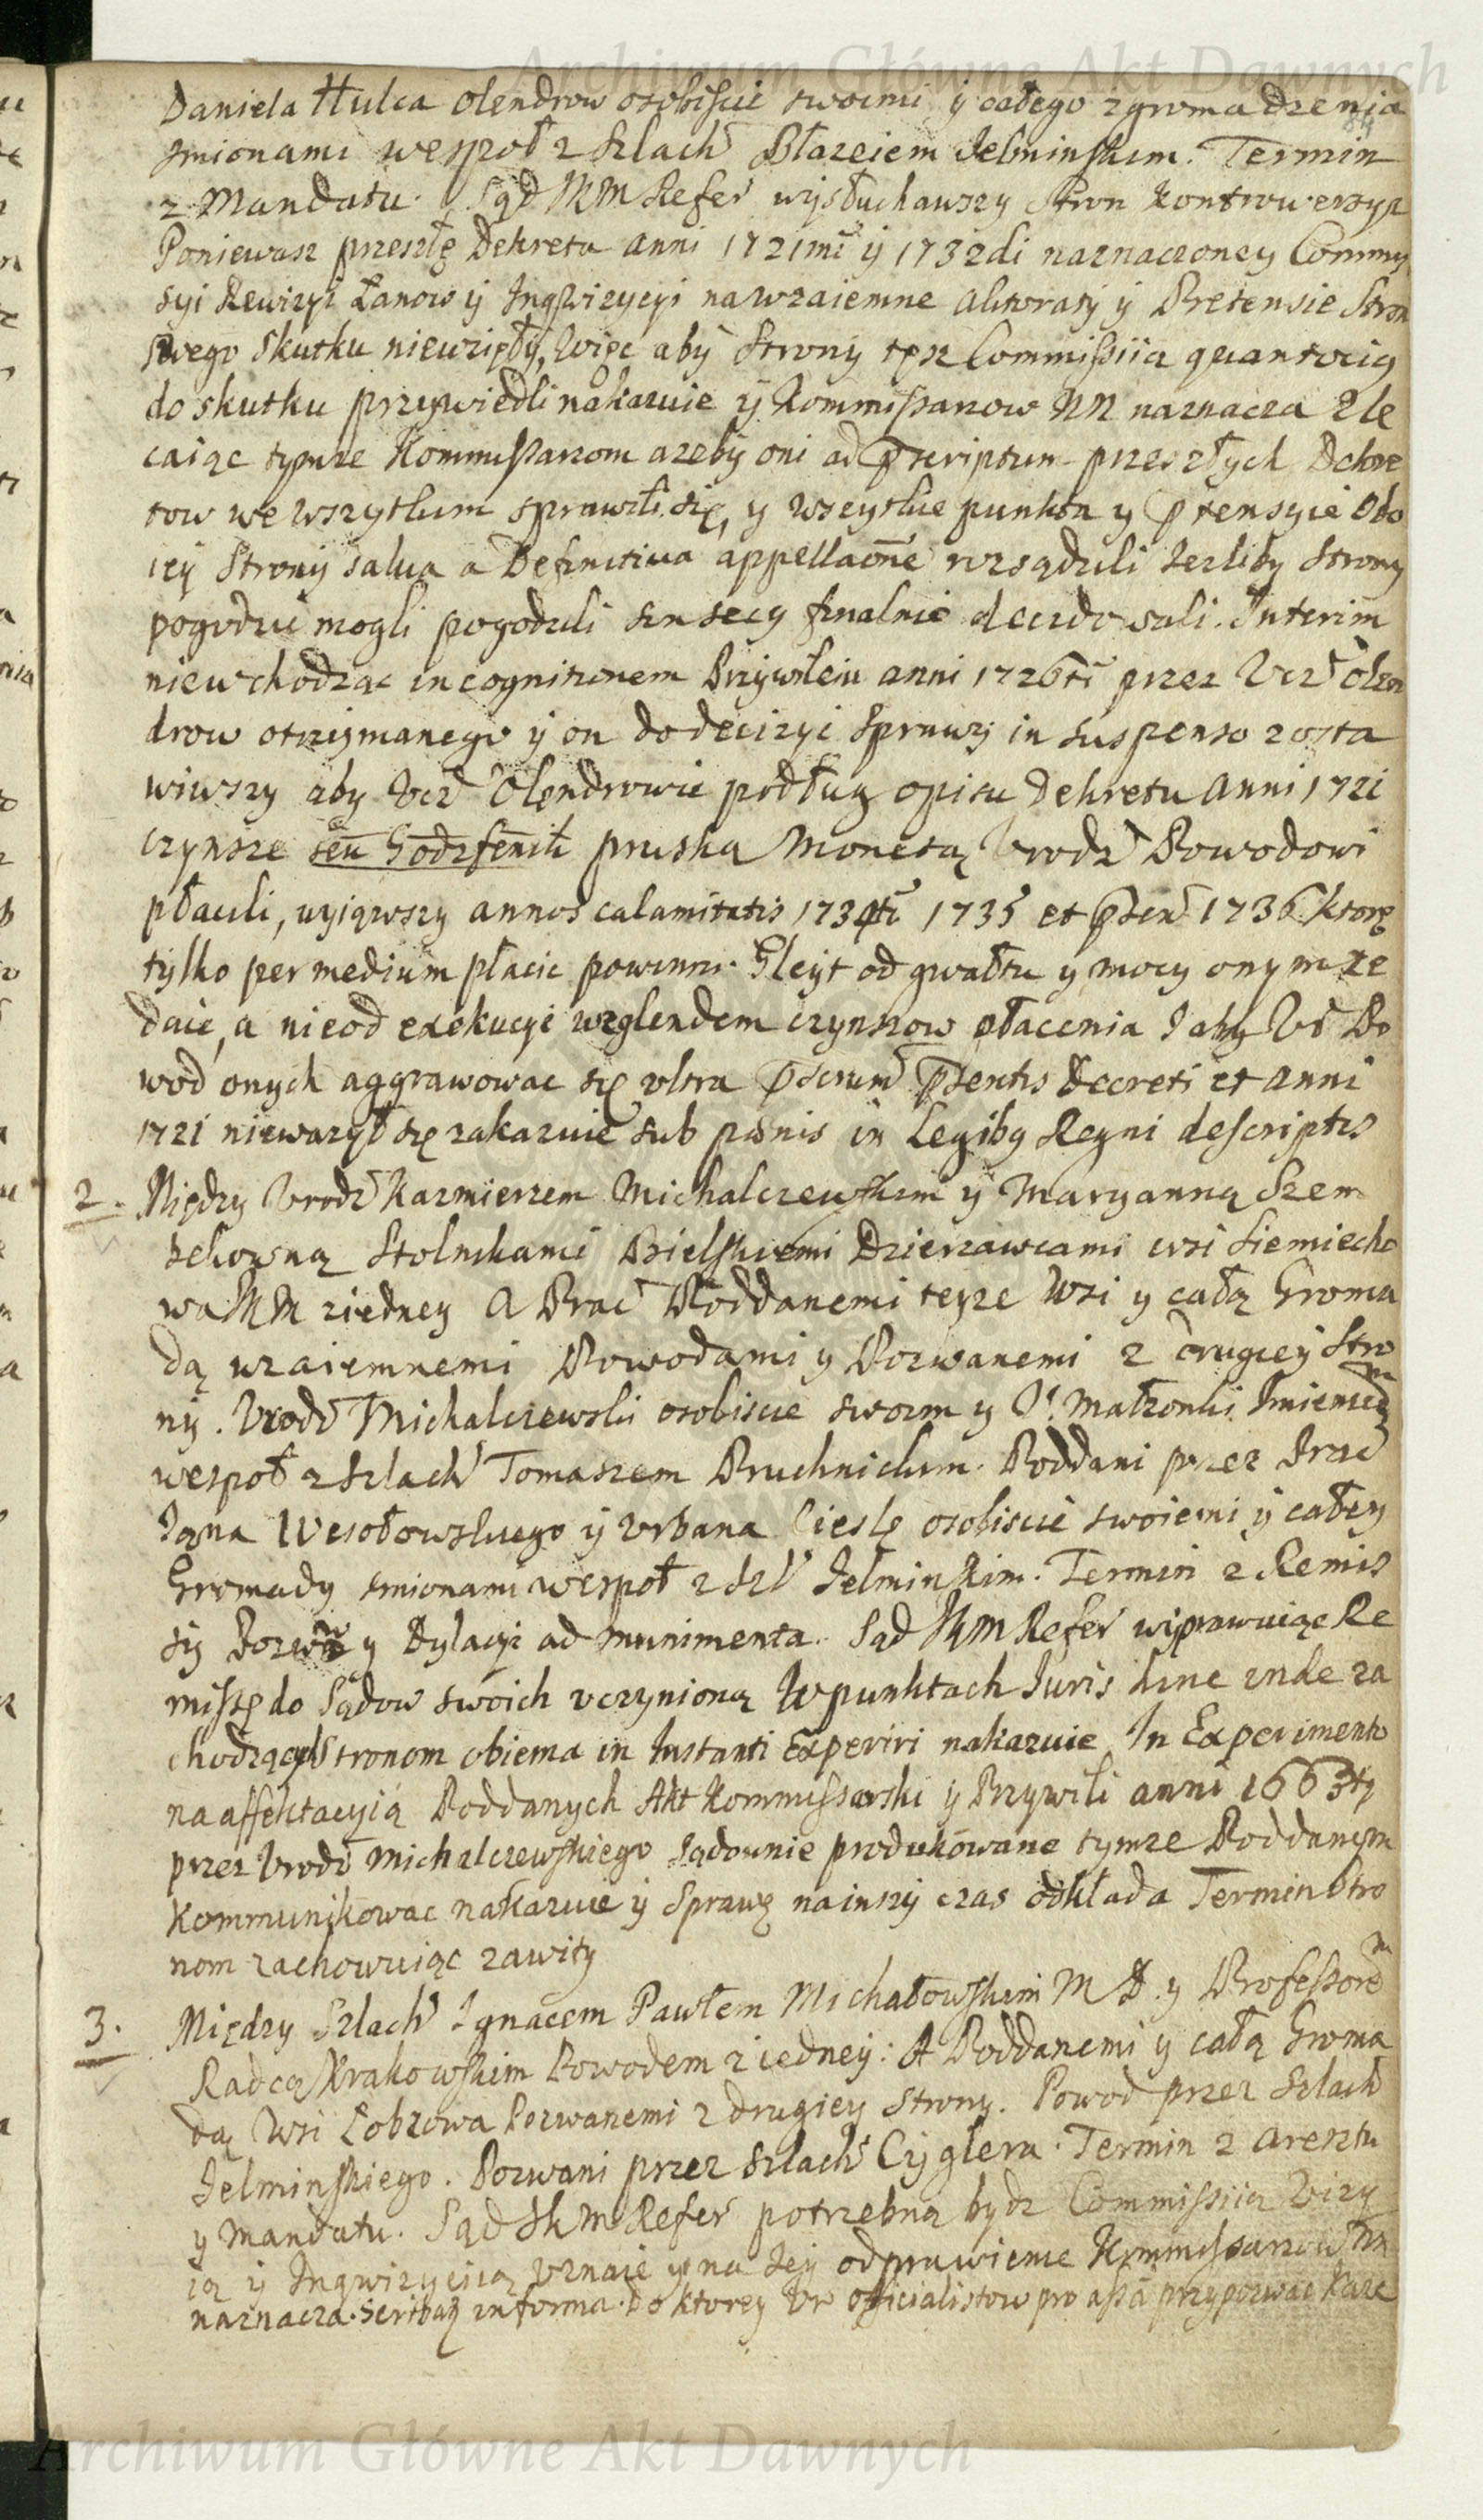 Archiwum Główne Akt Dawnych
Daniela Hulca olendrow osobiscie swoimi y całego zgromadzenia
jmionami wespoł z Szlach Błazeiem Jelminskim. Termin
z Mandatu. Sąd JKM Refer wysłuchawszy Stron kontrowersyi
Poniewasz przeszłę Dekreta anni 1721mi y 1732di naznaczoney Commy
syi Rewizyi Łanow y Inqwizycyi na wzaiemne y Pretensie Stron
swego skutku niewzięły, Więc aby Strony tęsz Commissiia quantocig
do skutku przywiedli nakazuie y Kommissarzow NN naznacza Zle
caiąc tymze Kommissarzom azeby oni ad pscriptum przeszłych Dekre
tow we wszytkim sprawili się, y wszytkie punkta y ptensyie Obo
iey Strony salva a Definitiva appellaõne rozsądzili Jezliby Strony
pogodzic mogli pogodzili sin secg finalnie decidowali. Interim
niewchodząc in cognitionem Przywileiu anni 1726ti przez Vcz Olen
drow otrzymanego y on do decizyi sprawy in suspenso zosta
wiwszy aby Vcz Olendrowie podług opisu Dekretu anni 1721
czynsze seu Godzfenih pruską Monetą Vrodz Powodowi
płacili, wyiąwszy annos calamitatis 1734ti 1735 et psen 1736 ktorę
tylko per medium płacic powinni. Gleyt od gwałtu y mocy onymze
daie, a nieod exekucyi wzglendem czynszow płacenia Jaby Vr Po
wod onych aggrawowac się vltra pscrum psentis Decreti et anni
1721 niewazył się zakazuie sub pænis in Legibg Regni descriptis
2. Między Vrodz Kazmierzem Michalczewskim y Maryanną Szem
bekowną Stolnikami Bielskiemi Dzierzawcami wsi Siemiecho
wa NN ziedney A Prac Poddanemi teyze Wsi y całą Groma
dą wzaiemnemi Powodami y Pozwanemi z drugiey Stro
ny. Vrodz Michalczewski osobiscie swoim y Vr Małzonki Jmieniem
wespoł z Szlach Tomaszem Pruchnickim. Poddani przez Prac
Jana Wesołowskiego y Vrbana Cieslę osobiscie swoiemi y całey
Gromady jmionami wespoł z Szl Jelminkim. Termin z Remis
sy Pozwu y Dylacyi ad munimenta. Sąd JKM Refer wiprawuiąc Re
missę do Sądow swoich vczynioną W punktach Juris hinc inde za
chodzących Stronom obiema in Instanti Experiri nakazuie. In Experimento
na affektacyią Poddanych Akt Kommissarski y Przywili anni 1663ty
przez Vrodz Michalczewskiego Sądownie produkowane tymze Poddanym
Kommunikowac nakazuie y Sprawę na inszy czas odkłada Termin Stro
nom zachowuiąc zawity
3. Między Szlach Ignacem Pawłem Michałowskim M D. y Professorem
Radcą Krakowskim Powodem z iedney: A Poddanemi y całą Groma
dą Wsi Łobzowa Pozwanemi z drugiey Strony. Powod przez Szlach
Jelminskiego. Pozwani przez Szlach Cyglera. Termin z aresztu
y Mandatu. Sąd JKM Refer potrzebną bydz Commissiią Wizy
ią y Inqwizyciią vznaie y na Jey odprawienie Kommissarzow NN
naznacza. Scribatg in forma. Do ktorey Vr officialistow pro assã przypozwac kaze
Archiwum Główne Akt Dawnych